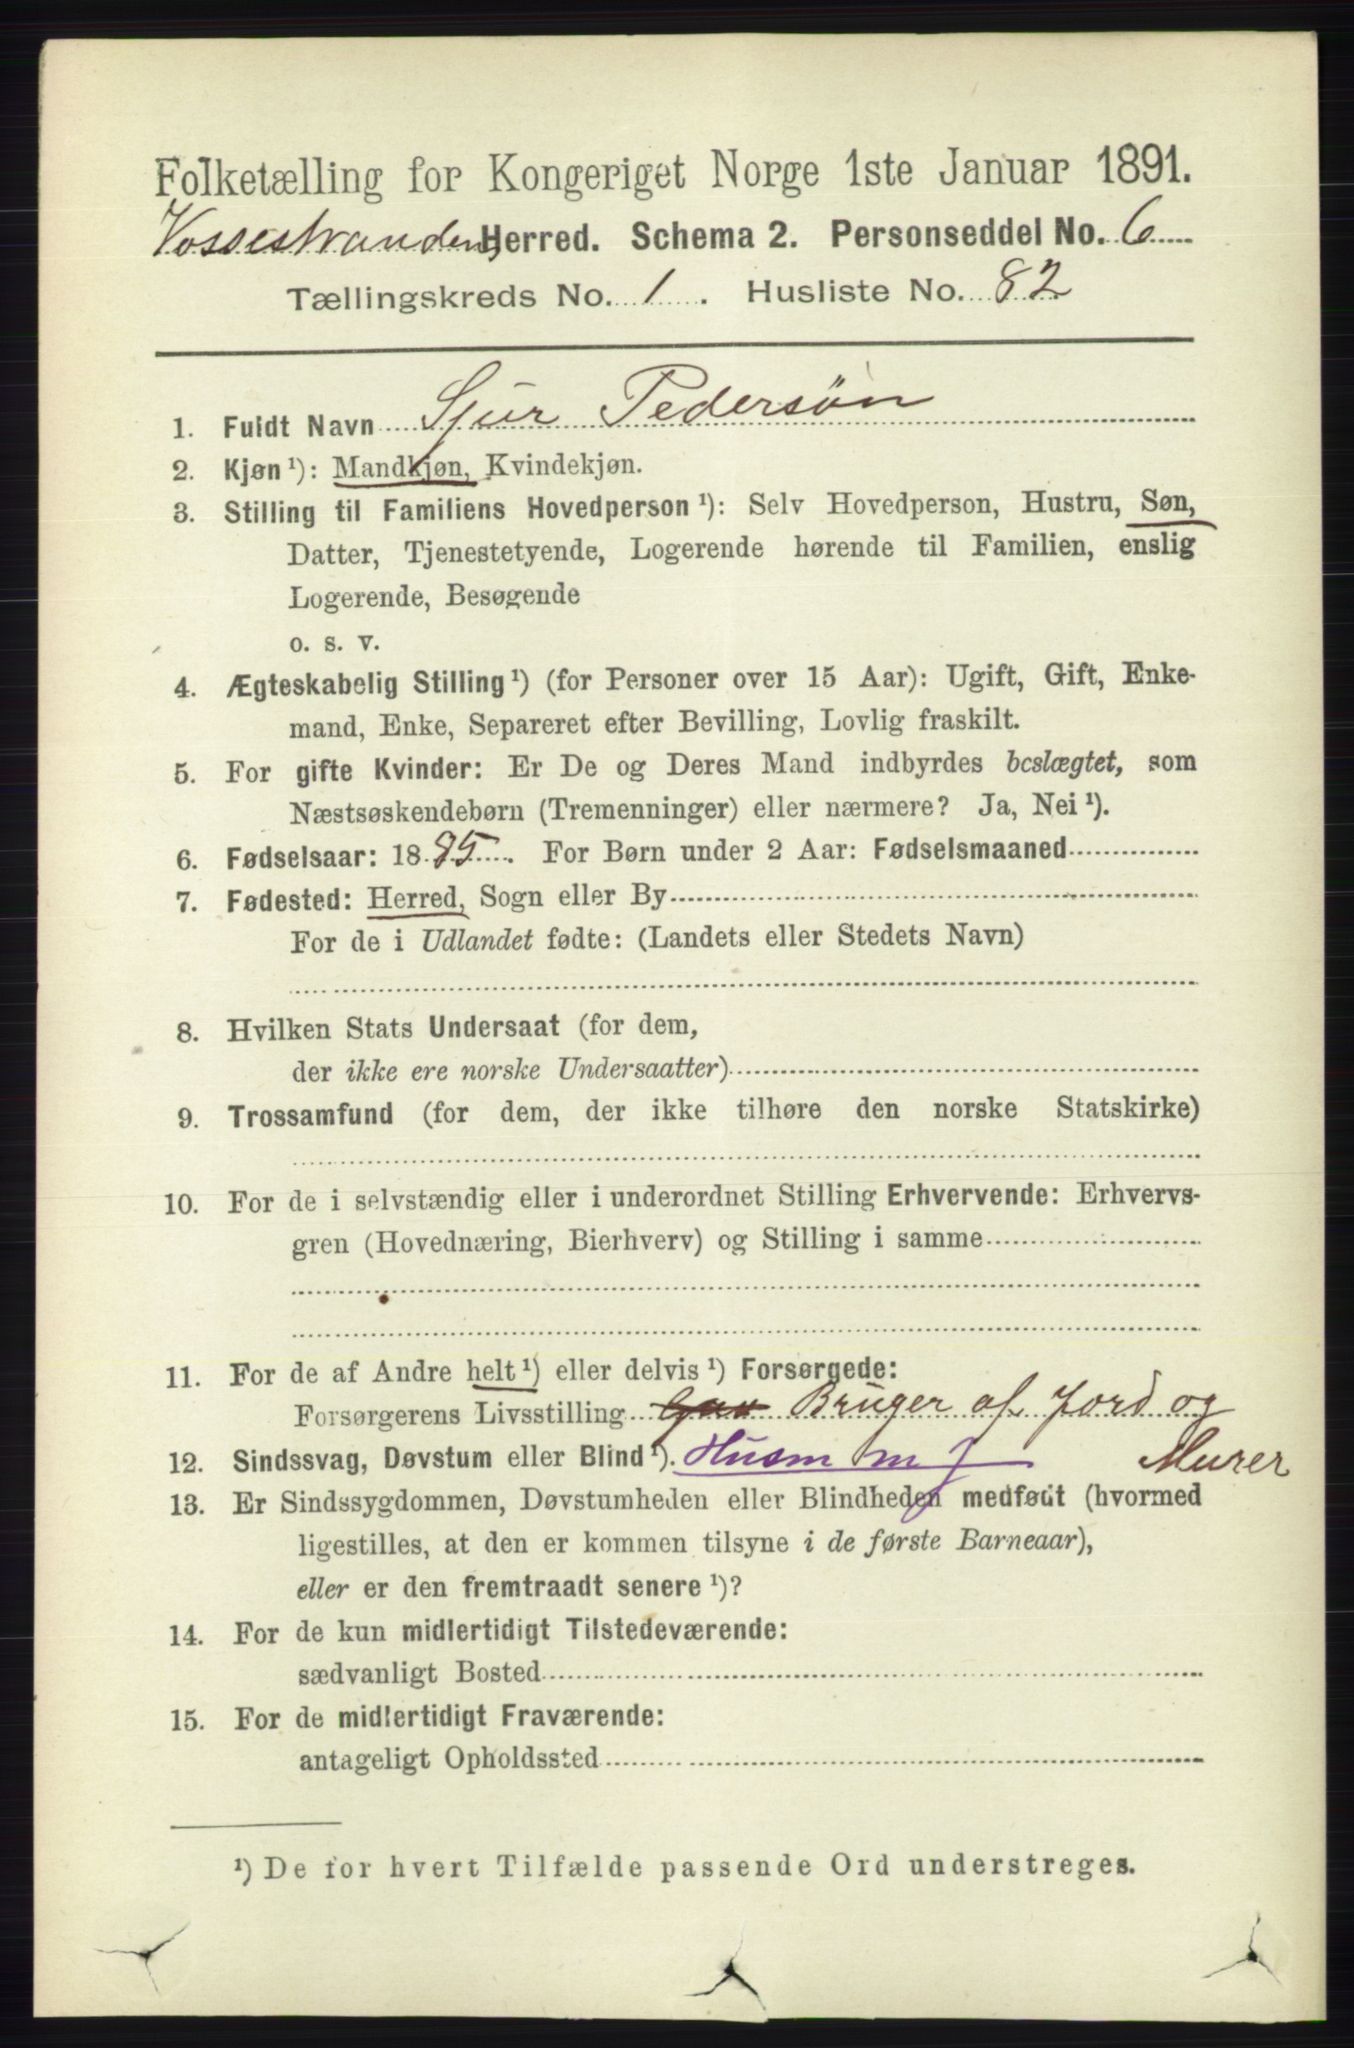 Folketælling for Kongeriget Norge 1ste Januar 1891.
Vossestranden, Herred. Schema 2. Personseddel No. 6
Tællingskreds No. 1. Husliste No. 82
1. Fuldt Navn Sjur Pedersøn
2. Kjøn ¹): Mandkjøn, Kvindekjøn.
3. Stilling til Familiens Hovedperson ¹): Selv Hovedperson, Hustru, Søn,
Datter, Tjenestetyende, Logerende hørende til Familien, enslig
Logerende, Besøgende
o. s. v.
4. Ægteskabelig Stilling ¹) (for Personer over 15 Aar): Ugift, Gift, Enke-
mand, Enke, Separeret efter Bevilling, Lovlig fraskilt.
5. For gifte Kvinder: Er De og Deres Mand indbyrdes beslægtet, som
Næstsøskendebørn (Tremenninger) eller nærmere? Ja, Nei ¹).
6. Fødselsaar: 1885. For Børn under 2 Aar: Fødselsmaaned
7. Fødested: Herred, Sogn eller By
For de i Udlandet fødte: (Landets eller Stedets Navn)
8. Hvilken Stats Undersaat (for dem,
der ikke ere norske Undersaatter)
9. Trossamfund (for dem, der ikke tilhøre den norske Statskirke)
10. For de i selvstændig eller i underordnet Stilling Erhvervende: Erhvervs-
gren (Hovednæring, Bierhverv) og Stilling i samme
11. For de af Andre helt ¹) eller delvis ¹) Forsørgede:
Forsørgerens Livsstilling Bruger af Jord og
Murer
12. Sindssvag, Døvstum eller Blind ¹). Husm m J
13. Er Sindssygdommen, Døvstumheden eller Blindheden medfødt (hvormed
ligestilles, at den er kommen tilsyne i de første Barneaar),
eller er den fremtraadt senere ¹)?
14. For de kun midlertidigt Tilstedeværende:
sædvanligt Bosted
15. For de midlertidigt Fraværende:
antageligt Opholdssted
¹) De for hvert Tilfælde passende Ord understreges.